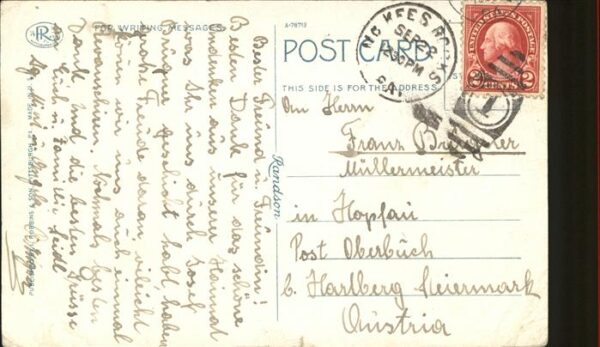 FOR WRITING MESSAGES
A-78712
POST CARD
THIS SIDE IS FOR ADDRESS
MC KEES ROCKS
SEP
PM
PA.
UNITED STATES POSTAGE
2 CENTS 2
1
Bester Freund u. Freundin!
Besten Dank für das schöne
Andenken aus unserer Heimat
was Ihr uns durch Josef
geschickt habt, haben
große Freude daran, vieleicht
können wir uns auch einmal
Nochmals besten
Dank und die besten Grüße
an Euch u. Familie Seidl
Randson
An Herrn
Franz
Müllermeister
in Hopfau
Post Oberbuch
b. Hartberg Steiermark
Austria